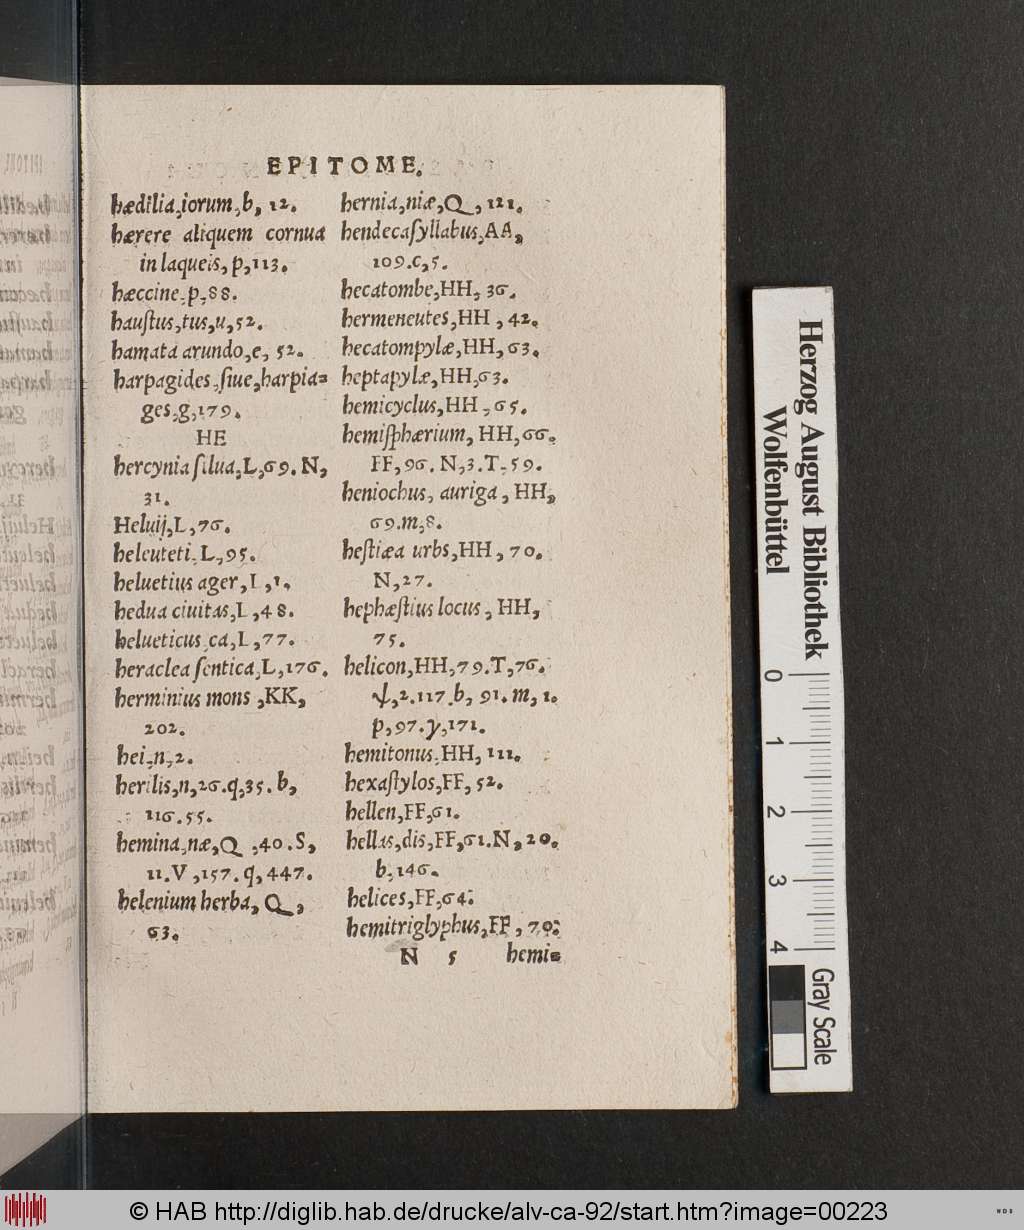 EPITOME.
hædilia,iorum,b, 12.
hærere aliquem cornua
in laqueis, p,113.
hæccine,p,88.
hauſtus,tus,u,52.
hamata arundo,e, 52.
harpagides,ſiue,harpia=
ges,g,179.
HE
hercynia ſilua,L,69. N,
31.
Heluij,L,76.
heleuteti, L,95.
heluetius ager,L,1.
hedua ciuitas,L,48.
helueticus,ca,L,77.
heraclea ſentica,L,176.
herminius mons ,KK,
202.
hei,n,2.
herilis,n,26.q,35.b,
116.55.
hemina,næ,Q ,40.S,
11.V ,157.q,447.
helenium herba, Q,
63.
hernia,niæ,Q,121.
hendecaſyllabus,AA,
109.c,5.
hecatombe,HH, 36.
hermeneutes,HH , 42.
hecatompylæ,HH,63.
heptapylæ,HH,63.
hemicyclus,HH ,65.
hemiſphærium, HH,66.
FF,96. N,3.T,59.
heniochus, auriga, HH,
69.m,8.
heſtiæa urbs,HH, 70.
N,27.
hephæſtius locus, HH,
75.
helicon,HH,79.T,76.
ψ,2.117.b, 91.m,1.
p,97.y,171.
hemitonus,HH, 111.
hexaſtylos,FF, 52.
hellen,FF,61.
hellas,dis,FF,61.N,20.
b,146.
helices,FF,64.
hemitriglyphus,FF, 70.
N 5 hemi=
Herzog August Bibliothek
Wolfenbüttel
0 1 2 3 4
Gray Scale
© HAB http://diglib.hab.de/drucke/alv-ca-92/start.htm?image=00223